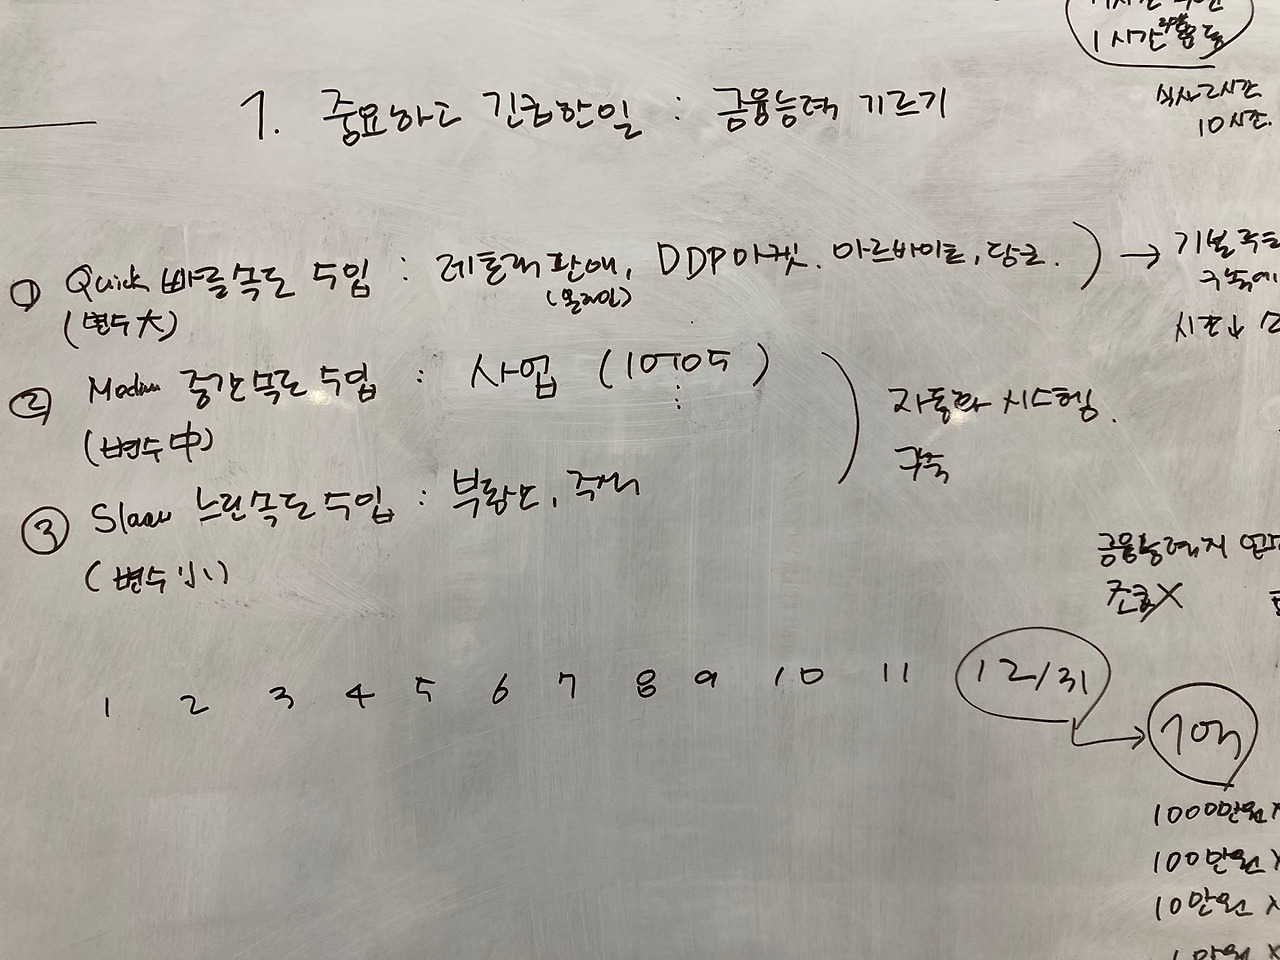 1시간
식사 2시간
10시간.
1. 중요하고 긴급한일 : 금융능력 기르기
① Quick 빠른속도 수입 : 판매, DDP마켓. 아르바이트, 당근. ) →
(온라인)
(변수大)
② Medium 중간속도 수입 : 사업 ( )
(변수中)
자동화 시스템.
구축
③ Slow 느린속도 수입 : 부동산, 주식
(변수小)
금융능력
X
1 2 3 4 5 6 7 8 9 10 11 12/31
→ 10억
1000만원 X
100만원 X
10만원 X
1만원 X